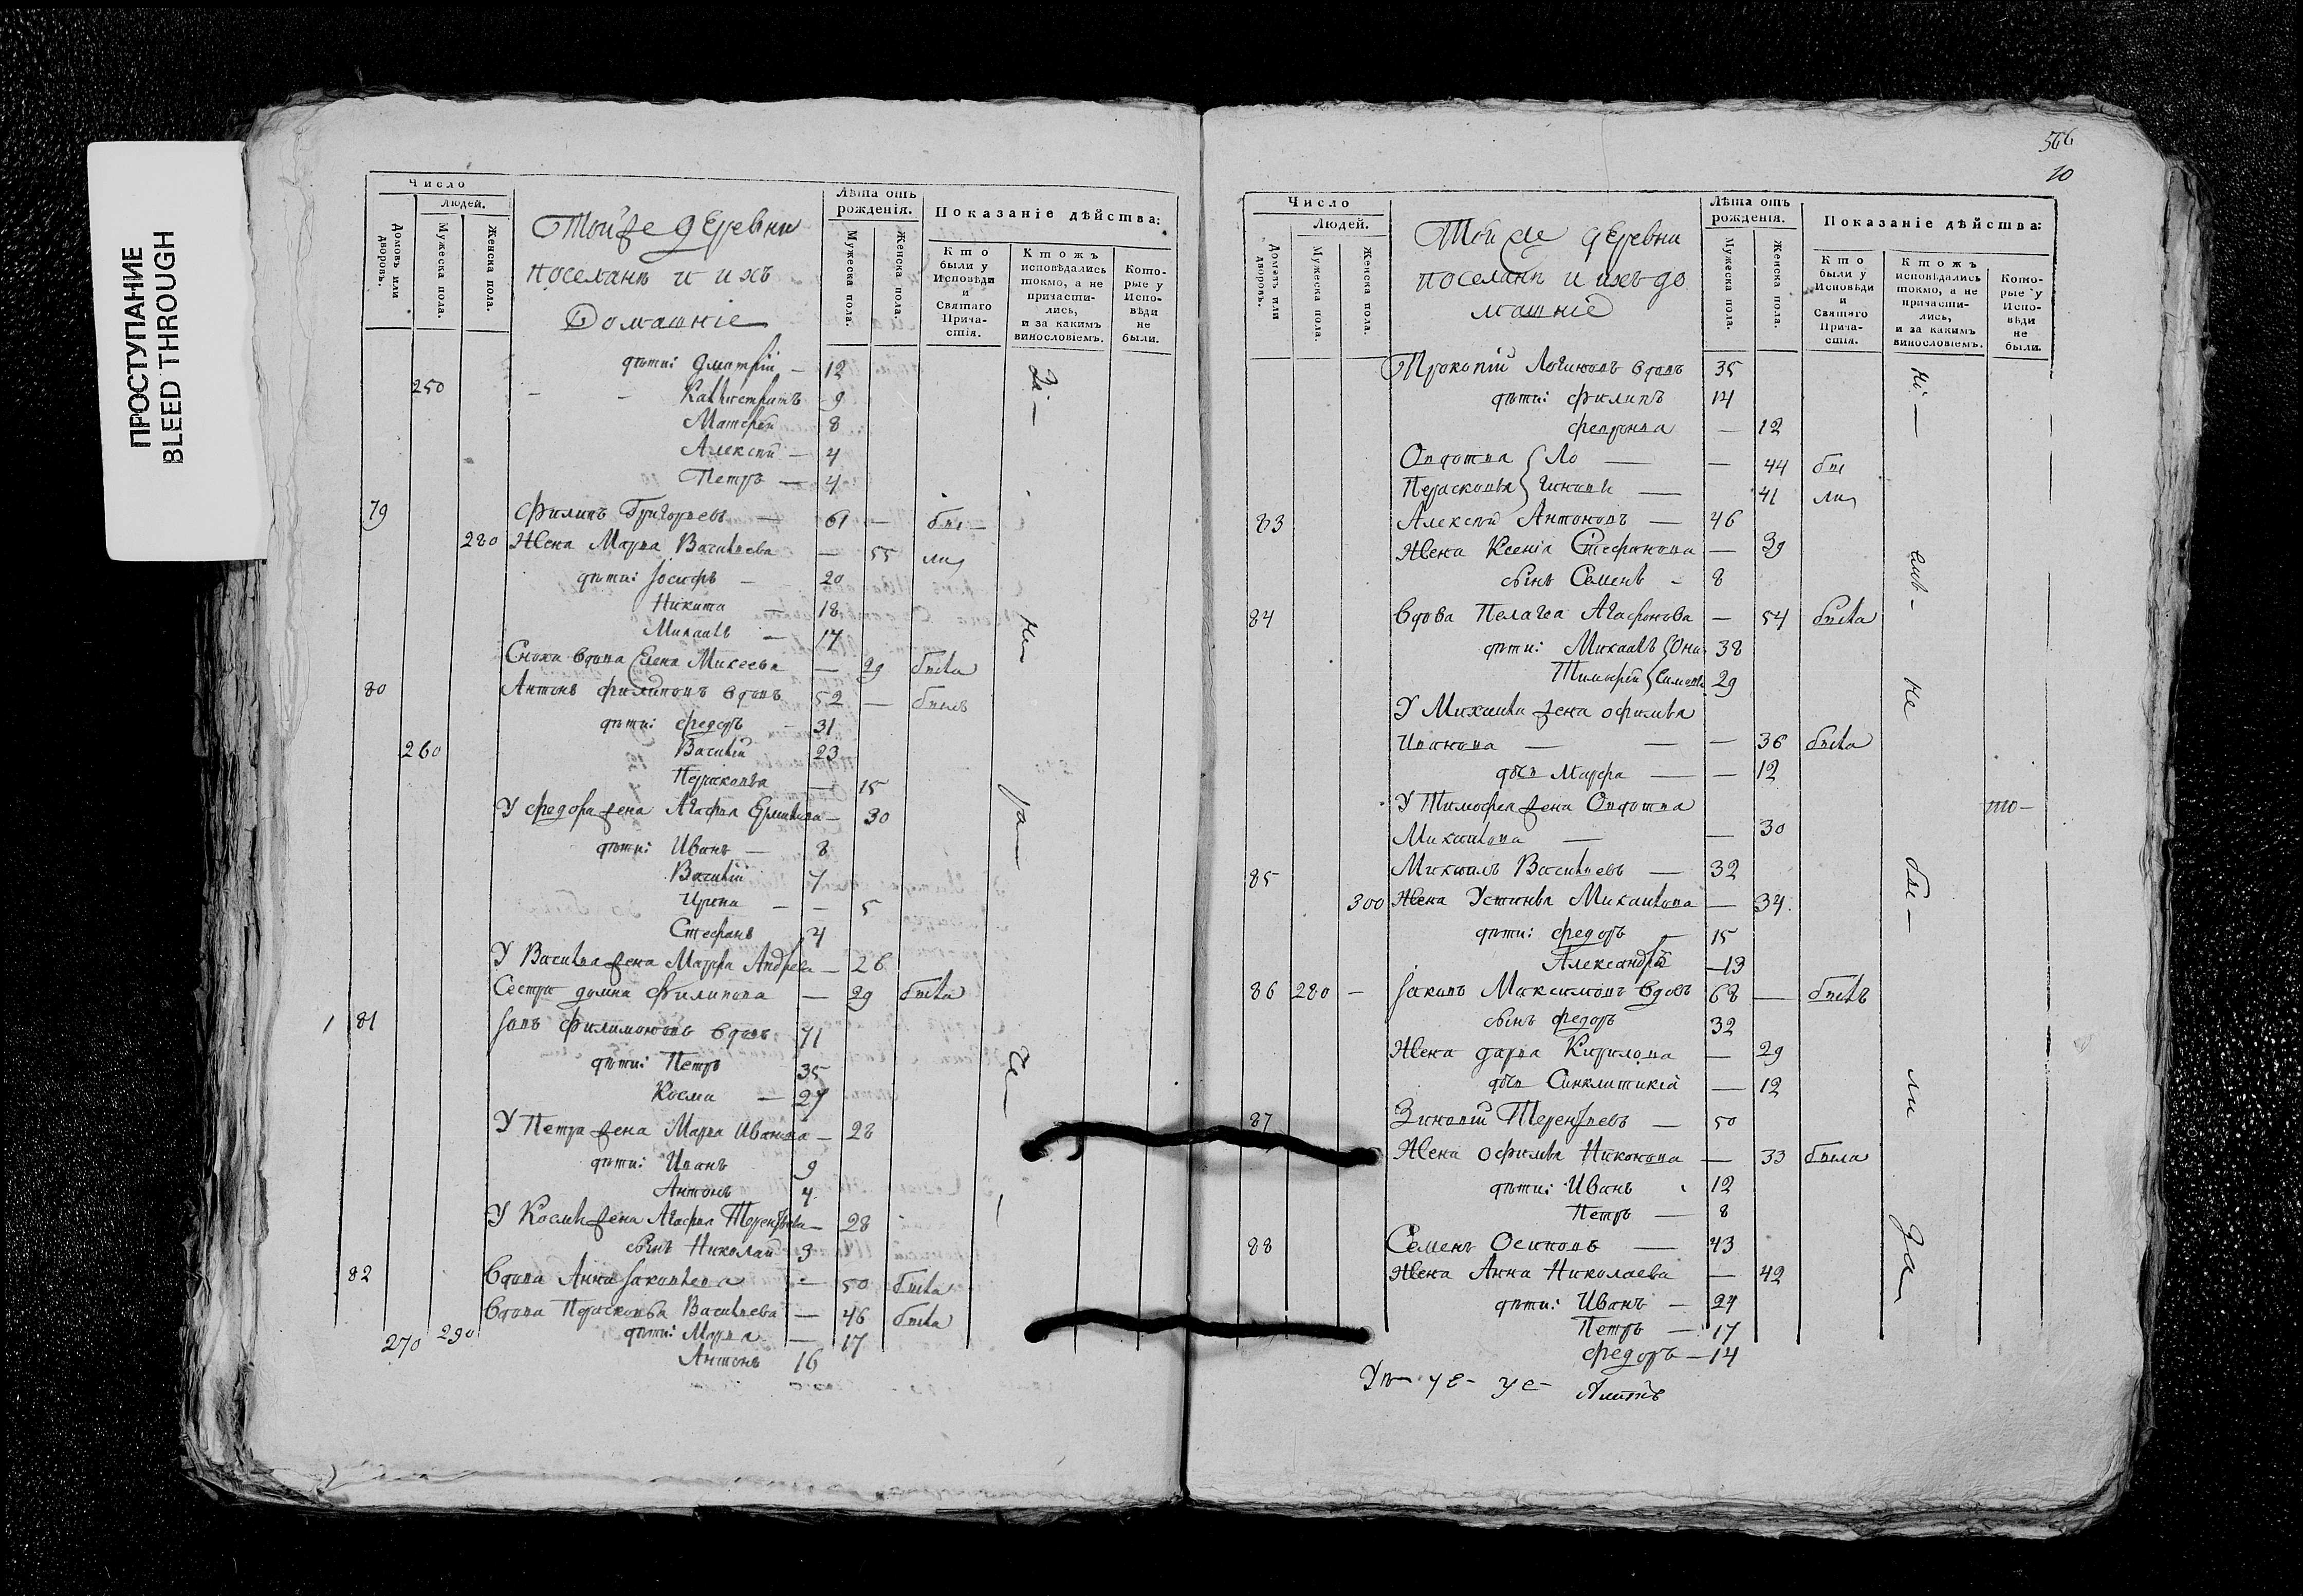 ПРОСТУПАНИЕ
BLEED THROUGH
Число
Людей.
Домовъ или дворовъ.
Мужеска пола.
Женска пола.
Тойже деревни
поселянъ и ихъ
Домашніе
Лѣта отъ рожденія.
Мужеска пола.
Женска пола.
Показаніе дѣйства:
Кто были у Исповѣди и Святаго Прича-стія.
Ктожъ исповѣдались токмо, а не причасти-лись, и за какимъ винословіемъ.
Кото-рые у Испо-вѣди не были.
дѣти: Дмитрій — 12
250 — — Каллистратъ 9
Матфей 8
Алексѣй — 4
Петръ — 4
79 Филипъ Григорьевъ — 61 — бы —
280 Жена Марѳа Васильева — 55 ли
дѣти: Іосифъ — 20
Никита — 18
Михаилъ — 17
Сноха вдова Елена Михеева — 29 была
80 Антонъ Филиповъ вдовъ 52 — былъ
дѣти: Федоръ — 31
260 Василій 23
Парасковья — 15
У Федора жена Агафья Ермилова — 30
дѣти: Иванъ — 8
Василій 7
Ирина — — 5
Стефанъ 4
У Василья жена Марѳа Андреева — 26
Сестра Домна Филипова — 29 была
81 Іовъ Филимоновъ вдовъ 71
дѣти: Петръ 35
Косма — 27
У Петра жена Марья Иванова — 28
дѣти: Иванъ 9
Антонъ 4
У Космы жена Агафья Терентьева — 28
сынъ Николай 3
82 Вдова Анна Іаковлева — 50 была
Вдова Парасковья Васильева — 46 была
270 290 дѣти: Марья — 17
Антонъ 16
566
10
Число
Людей.
Домовъ или дворовъ.
Мужеска пола.
Женска пола.
Той же деревни
поселянъ и ихъ до
машніе
Лѣта отъ рожденія.
Мужеска пола.
Женска пола.
Показаніе дѣйства:
Кто были у Исповѣди и Святаго Прича-стія.
Ктожъ исповѣдались токмо, а не причасти-лись, и за какимъ винословіемъ.
Кото-рые у Испо-вѣди не были.
Прокопій Логиновъ вдовъ 35
дѣти: Филипъ 14
Февронья — 12
Овдотья Ло — — 44 бы
Парасковья гиновы — 41 ли
83 Алексѣй Антоновъ — 46
Жена Ксенія Стефанова — 39
сынъ Семенъ — 8
84 Вдова Пелагея Агафонова — 54 была
дѣти: Михаилъ Они 38
Тимофей симовы 29
У Михаила жена Офимья
Иванова — — — 36 была
дочь Марфа — — 12
У Тимофея жена Овдотья
Михаилова — — 30
85 Михаилъ Васильевъ — 32
300 Жена Устинья Михаилова — 34
дѣти: Федоръ — 15
Александръ — 13
86 280 — Іаковъ Максимовъ вдовъ 68 — былъ
сынъ Федоръ 32
Жена Дарья Кирилова — 29
дочь Синклитикія — 12
87 Зиновій Терентьевъ — 50
Жена Офимья Никонова — 33 была
дѣти: Иванъ 12
Петръ — 8
88 Семенъ Осиповъ — 43
Жена Анна Николаева — 42
дѣти: Иванъ — 24
Петръ — 17
Федоръ — 14